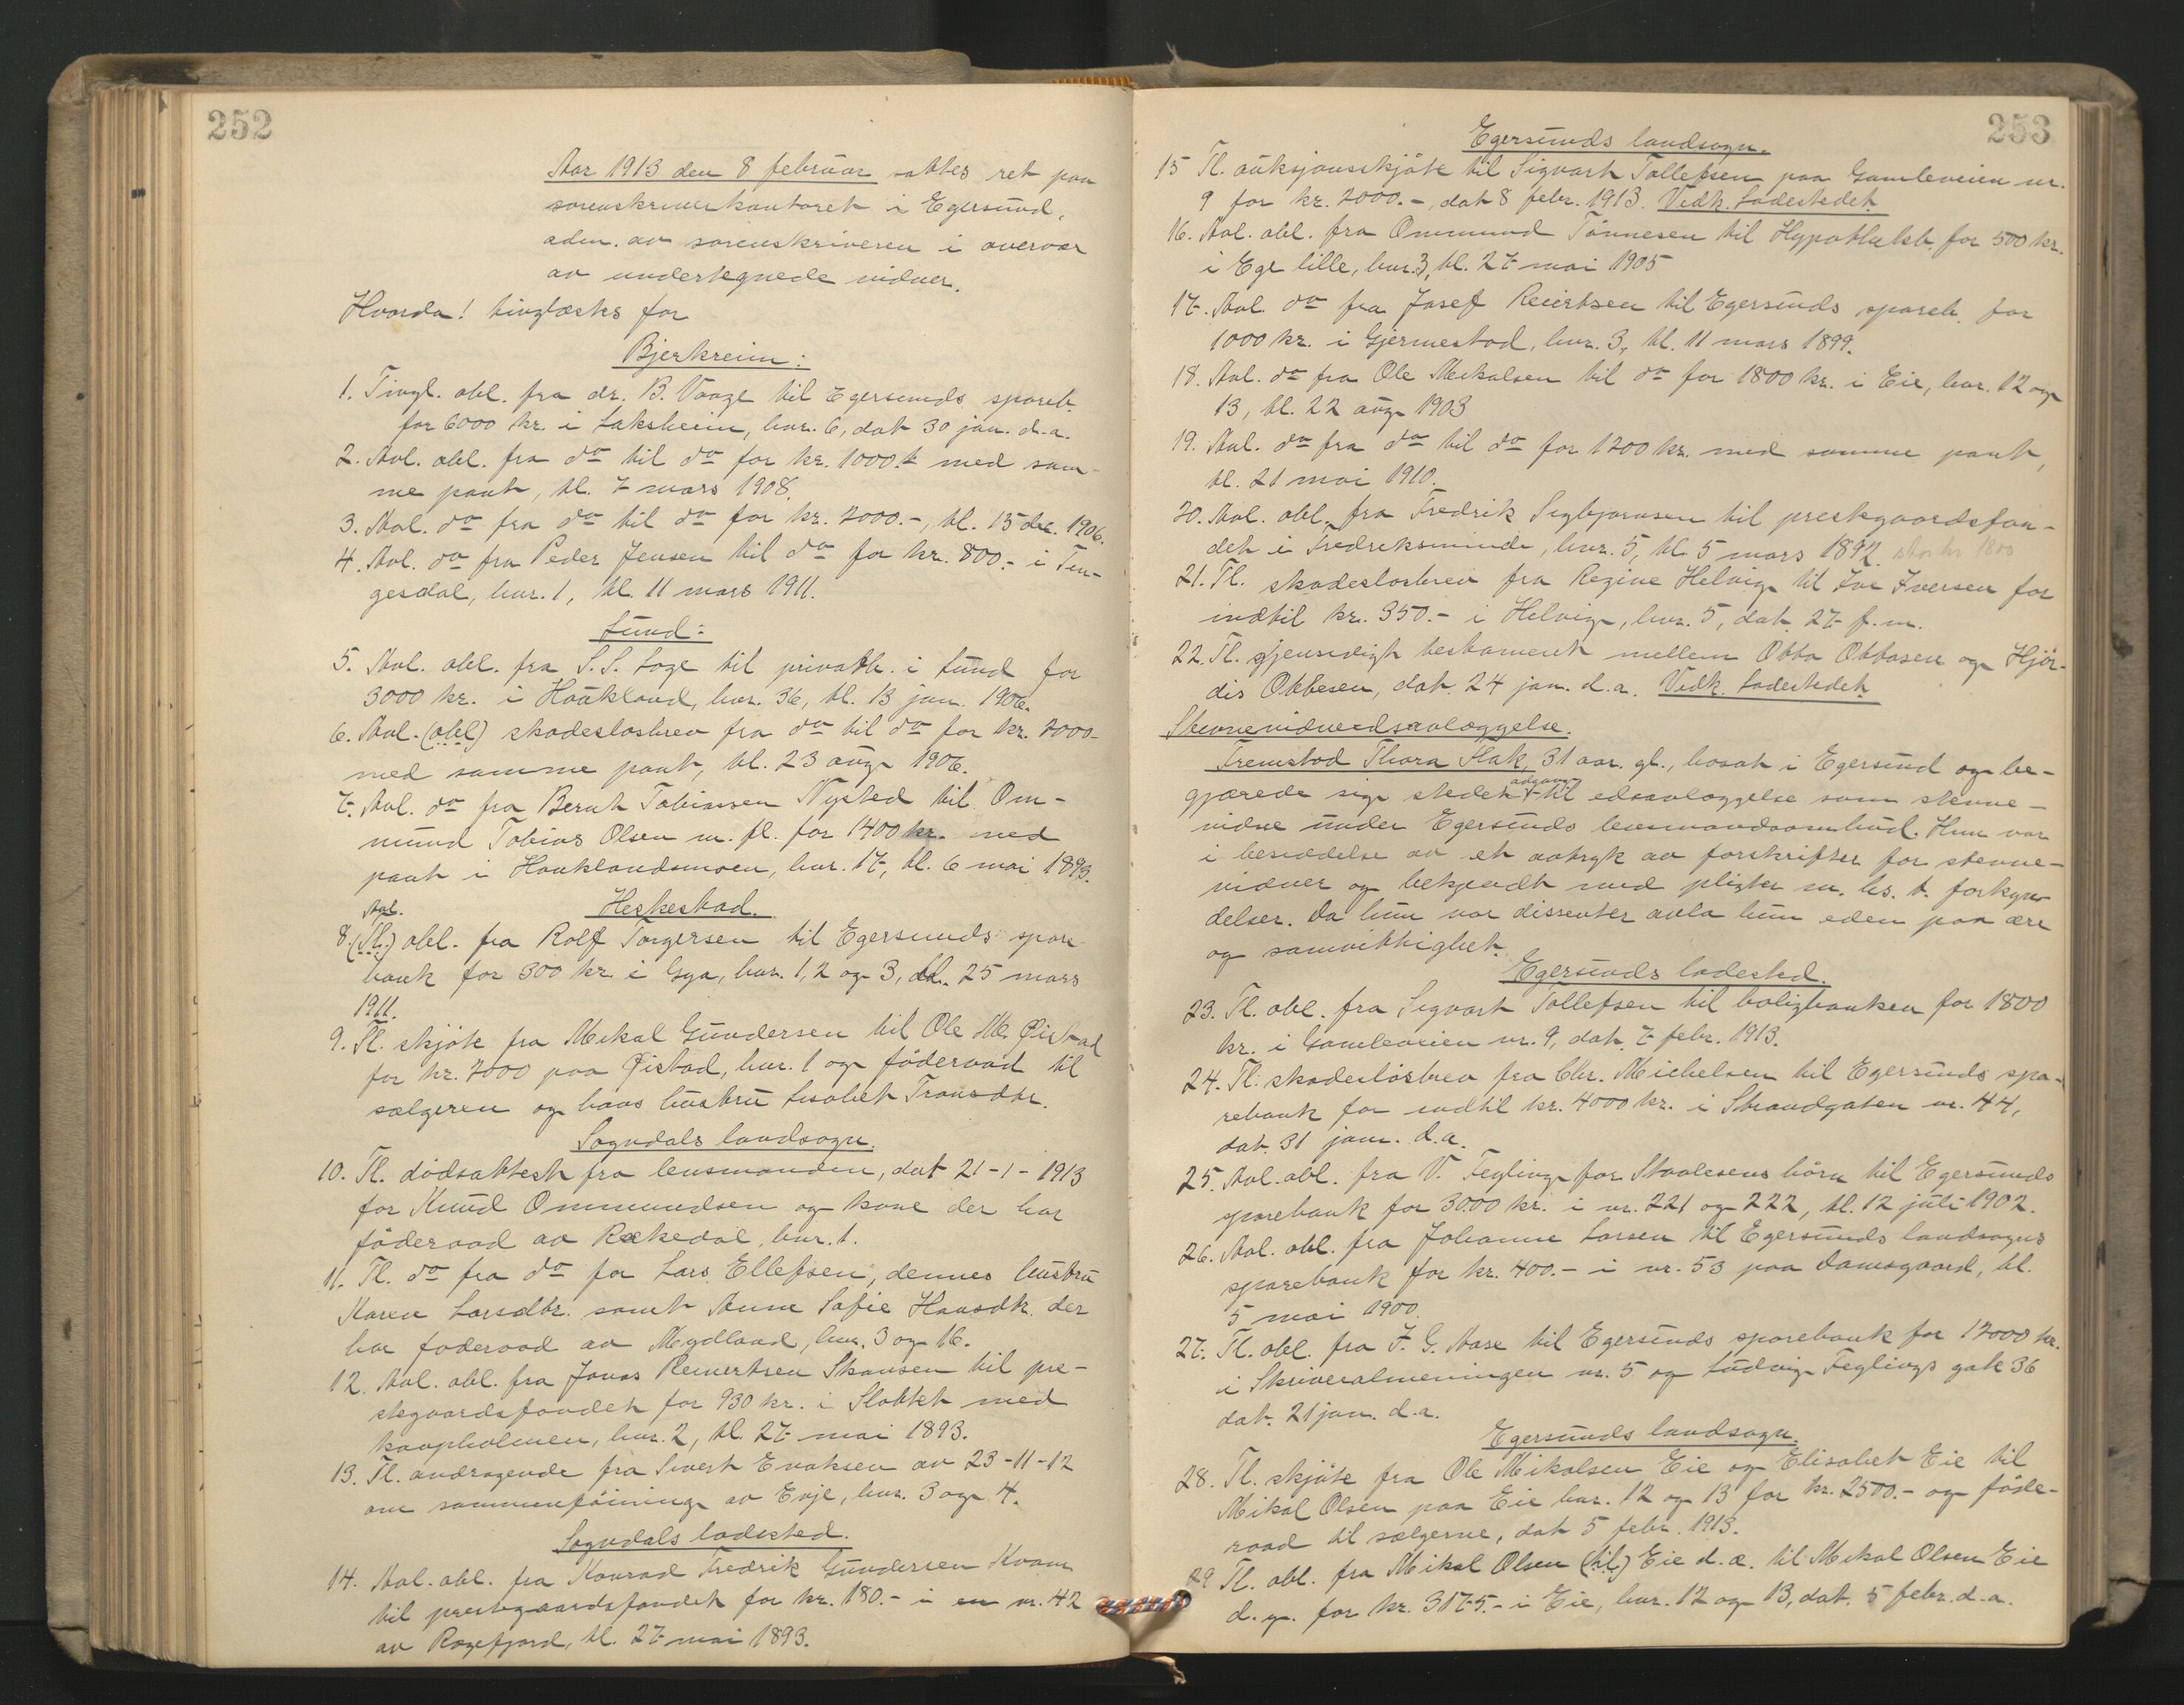 252
Aar 1913 den 8 februar sattes ret paa
sorenskriverkontoret i Egersund,
adm. av sorenskriveren i overvær
av undertegnede vidner.
Hvorda! tinglæstes for
Bjerkreim:
1. Tingl. obl. fra dr. B. Vaage til Egersunds spareb.
for 6000 kr. i Laksheim, bnr. 6, dat 30 jan. d.a.
2. Avl. obl. fra do til do for kr. 1000.- med sam-
me pant, tl. 7 mars 1908.
3. Avl. do fra do til do for kr. 2000.-, tl. 15 dec. 1906.
4. Avl. do fra Peder Jensen til do for kr. 800.- i Ten-
gesdal, bnr. 1, tl. 11 mars 1911.
Lund:
5. Avl. obl. fra S. S. Loge til privatb. i Lund for
3000 kr. i Haukland, bnr. 36, tl. 13 jan. 1906.
6. Avl. (obl) skadesløsbrev fra do til do for kr. 2000-
med samme pant, tl. 23 aug 1906.
7. Avl. do fra Bernt Tobiassen Nysted til Om-
mund Tobias Olsen m. fl. for 1400 kr. med
pant i Hauklandsmoen, bnr. 17, tl. 6 mai 1893.
Heskestad.
Avl.
8. (Tl.) obl. fra Rolf Torgersen til Egersunds spare-
bank for 300 kr. i Gya, bnr. 1, 2 og 3, tl. 25 mars
1911.
9. Tl. skjöte fra Mikal Gundersen til Ole M. Øistad
for kr. 2000 paa Øistad, bnr. 1 og föderaad til
sælgeren og hans hustru Lisabet Transdtr.
Sogndals landsogn.
10. Tl. dödsattest fra lensmanden, dat 21-1-1913
for Knud Ommundsen og kone der har
föderaad av Rækedal, bnr. 1.
11. Tl. do fra do for Lars Ellefsen, dennes hustru
Karen Larsdtr. samt Anne Sofie Hansdtr. der
har foderaad av Mydland, bnr. 3 og 16.
12. Avl. obl. fra Jonas Reinertsen Skansen til pre-
stegaardsfondet for 930 kr. i Slottet med
kaapholmen, bnr. 2, tl. 27 mai 1893.
13. Tl. andragende fra Sivert Enoksen av 23-11-12
om sammenföining av Evje, bnr. 3 og 4.
Sogndals ladested.
14. Avl. obl. fra Konrad Fredrik Gundersen Kvam
til prestegaardsfondet for kr. 180.- i nr. 42
av Rægefjord, tl. 27 mai 1893.
253
Egersunds landsogn.
15 Tl. auksjonsskjöte til Sigvart Tollefsen paa Gamleveien nr.
9 for kr. 2000.-, dat 8 febr. 1913. Vedk. Ladestedet
16. Avl. obl. fra Ommund Tönnesen til Hypothekb. for 500 kr.
i Ege lille, bnr. 3, tl. 27 mai 1905
17. Avl. do fra Josef Reiertsen til Egersunds spareb. for
1000 kr. i Gjermestad, bnr. 3, tl. 11 mars 1899.
18. Avl. do fra Ole Mikalsen til do for 1800 kr. i Eie, bnr. 12 og
13, tl. 22 aug 1903
19. Avl. do fra do til do for 1200 kr. med samme pant,
tl. 21 mai 1910.
20. Avl. obl. fra Fredrik Sigbjørnsen til prestgaardsfon-
det i Fredreksminde, bnr. 5, tl. 5 mars 1892 stor kr 1800
21. Tl. skadesløsbrev fra Regine Helvig til Ive Iversen for
indtil kr. 350.- i Helvig, bnr. 5, dat 27 f. m.
22. Tl. gjensidigt testament mellem Obbo Obbosen og Hjör-
dis Obbesen, dat. 24 jan. d.a. Vedk. Ladestedet.
Stevnevidneedsavlæggelse.
Fremstod Thora Hak, 31 aar gl., bosat i Egersund og be-
gjærede sig stedet adgang til edsavlæggelse som stevne-
vidne under Egersunds lensmandsombud. Hun var
i besiddelse av et avtryk av forskrifter for stevne-
vidner og bekjendt med pligter m. hs. t. forkyn-
delser. Da hun var dissenter avla hun eden paa ære
og samvittighet.
Egersunds ladested.
23. Tl. obl. fra Sigvart Tollefsen til boligbanken for 1800
kr. i Gamleveien nr. 9, dat. 7 febr. 1913.
24. Tl. skadesløsbrev fra Chr. Michelsen til Egersunds spa-
rebank for indtil kr. 4000 kr. i Strandgaten nr. 44,
dat. 31 jan. d.a.
25. Avl. obl. fra V. Feyling for Staalesens börn til Egersunds
sparebank for 3000 kr. i nr. 221 og 222, tl. 12 juli 1902.
26. Avl. obl. fra Johanne Larsen til Egersunds landsogns
sparebank for kr. 400.- i nr. 53 paa Damsgaard, tl.
5 mai 1900.
27. Tl. obl. fra F. G. Aase til Egersunds sparebank for 12000 kr.
i Skriveralmeningen nr. 5 og Ludvig Feylings gate 36
dat. 21 jan. d.a.
Egersunds landsogn.
28. Tl. skjöte fra Ole Mikalsen Eie og Elisabet Eie til
Mikal Olsen paa Eie bnr. 12 og 13 for kr. 2500.- og föde-
raad til sælgerne, dat 5 febr. 1913.
29 Tl. obl. fra Mikal Olsen (til) Eie d. æ. til Mikal Olsen Eie
d. y. for kr. 3175.- i Eie, bnr. 12 og 13, dat. 5 febr. d.a.